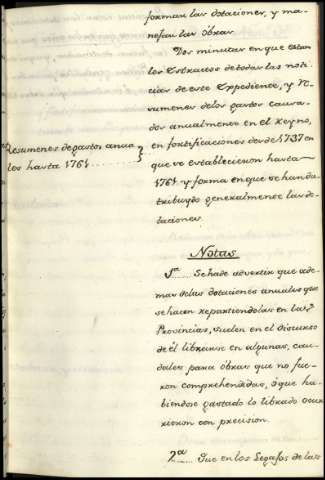 forman las dotaciones, y ma-
nejan las obras.
Dos minutas en que estan
los Extractos de todas las noti-
cias de este Expediente, y Re-
sumenes de los gastos causa-
dos anualmente en el Reyno,
en fortificaciones desde 1737 en
Resumenes de gastos anua-
les hasta 1761
que se establecieron hasta
1761 y forma en que se han dis-
tribuydo generalmente las do-
taciones.
Notas
1ª Se ha de advertir que ade-
mas de las dotaciones anuales que
se hacen repartiendolas en las
Provincias, suelen en el discurso
de él librarse en algunas, cau-
dales para obras que no fue-
ron comprehendidas, ó que ha-
biendose gastado lo librado ocur-
rieron con precision.
2ª Que en los Legajos de las